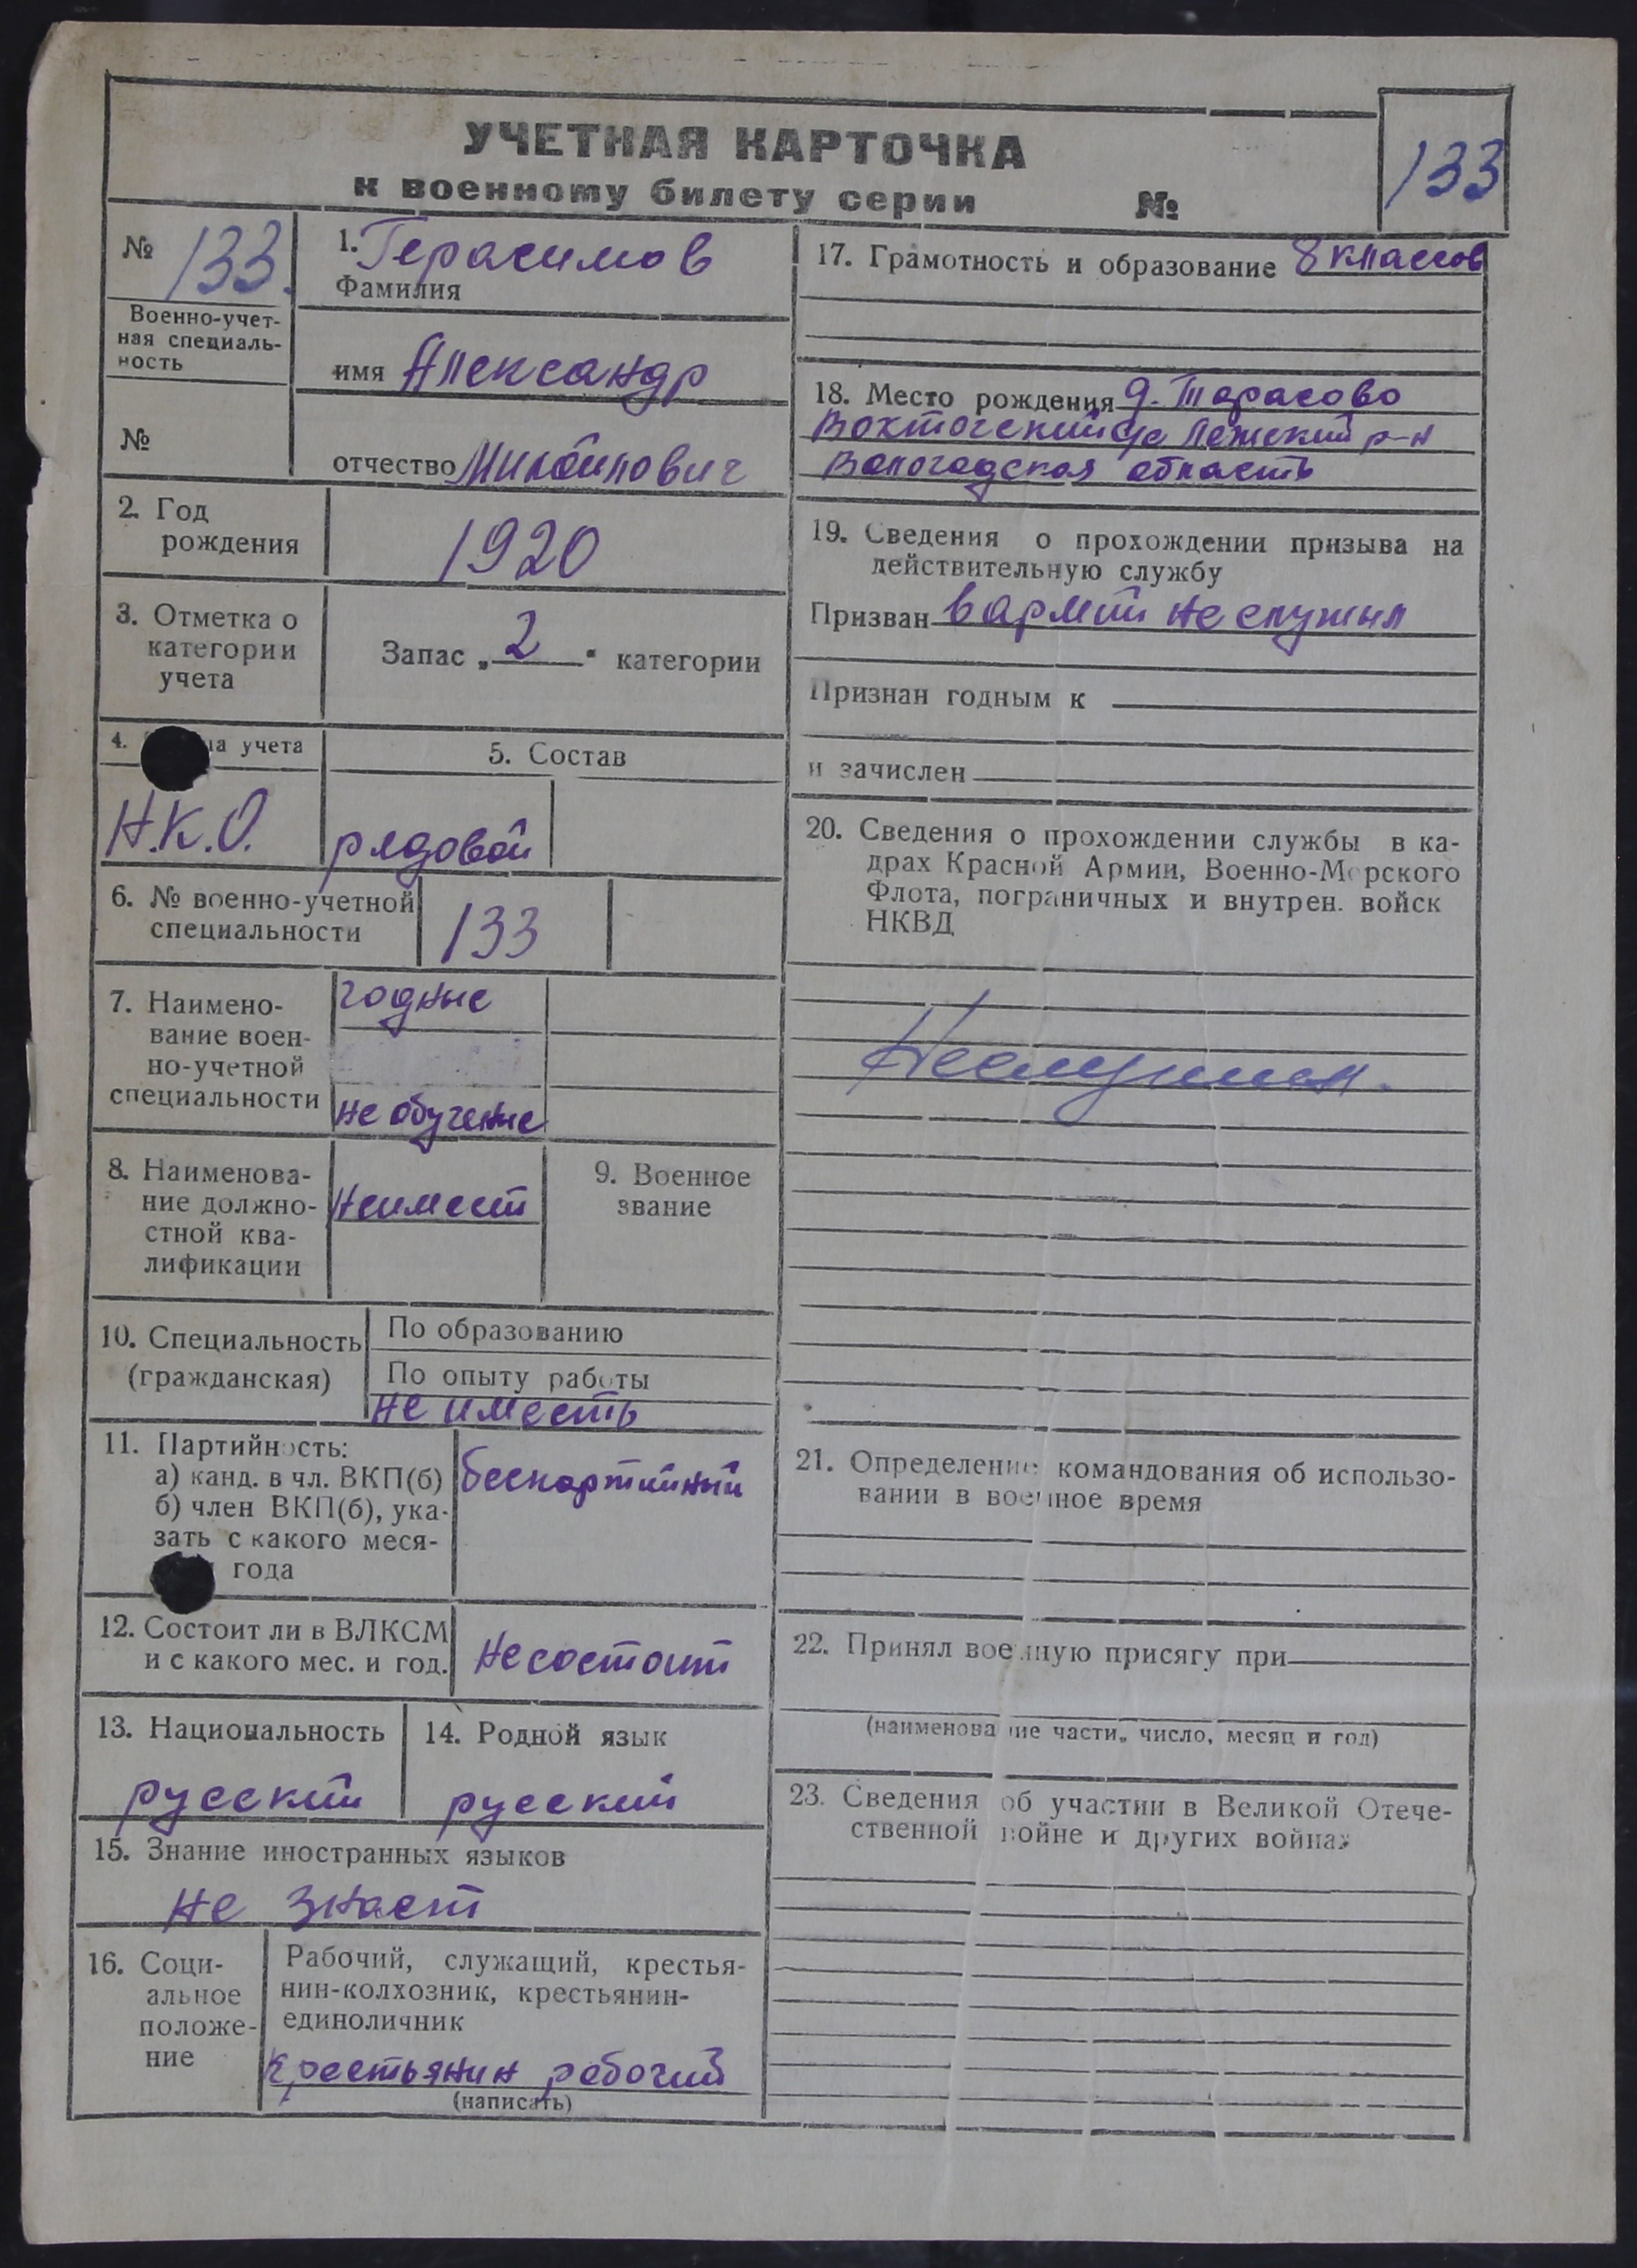 УЧЕТНАЯ КАРТОЧКА
к военному билету серии №
133
№ 133.
Военно-учет-
ная специаль-
ность
№
1. Герасимов
Фамилия
имя Александр
отчество
2. Год
рождения
1920
3. Отметка о
категории
учета
Запас „2“ категории
4. на учета
Н.К.О.
5. Состав
рядовой
6. № военно-учетной
специальности
133
7. Наимено-
вание воен-
но-учетной
специальности
годные
не обученые
8. Наименова-
ние должно-
стной ква-
лификации
Неимеет
9. Военное
звание
10. Специальность
(гражданская)
По образованию
По опыту работы
не имееть
11. Партийность:
а) канд. в чл. ВКП(б)
б) член ВКП(б), ука-
зать с какого меся-
года
беспартийный
12. Состоит ли в ВЛКСМ
и с какого мес. и год.
Несостоит
13. Национальность
русский
14. Родной язык
русский
15. Знание иностранных языков
не знает
16. Соци-
альное
положе-
ние
Рабочий, служащий, крестья-
нин-колхозник, крестьянин-
единоличник
Крестьянин рабочий
(написать)
17. Грамотность и образование 8 классов
18. Место рождения д. Тарасово
Лежский р-н
Вологодская область
19. Сведения о прохождении призыва на
действительную службу
Призван в армии не служил
Признан годным к
и зачислен
20. Сведения о прохождении службы в ка-
драх Красной Армии, Военно-Морского
Флота, пограничных и внутрен. войск
НКВД
Неслужил.
21. Определение командования об использо-
вании в военное время
22. Принял военную присягу при
(наименование части, число, месяц и год)
23. Сведения об участии в Великой Отече-
ственной войне и других войнах